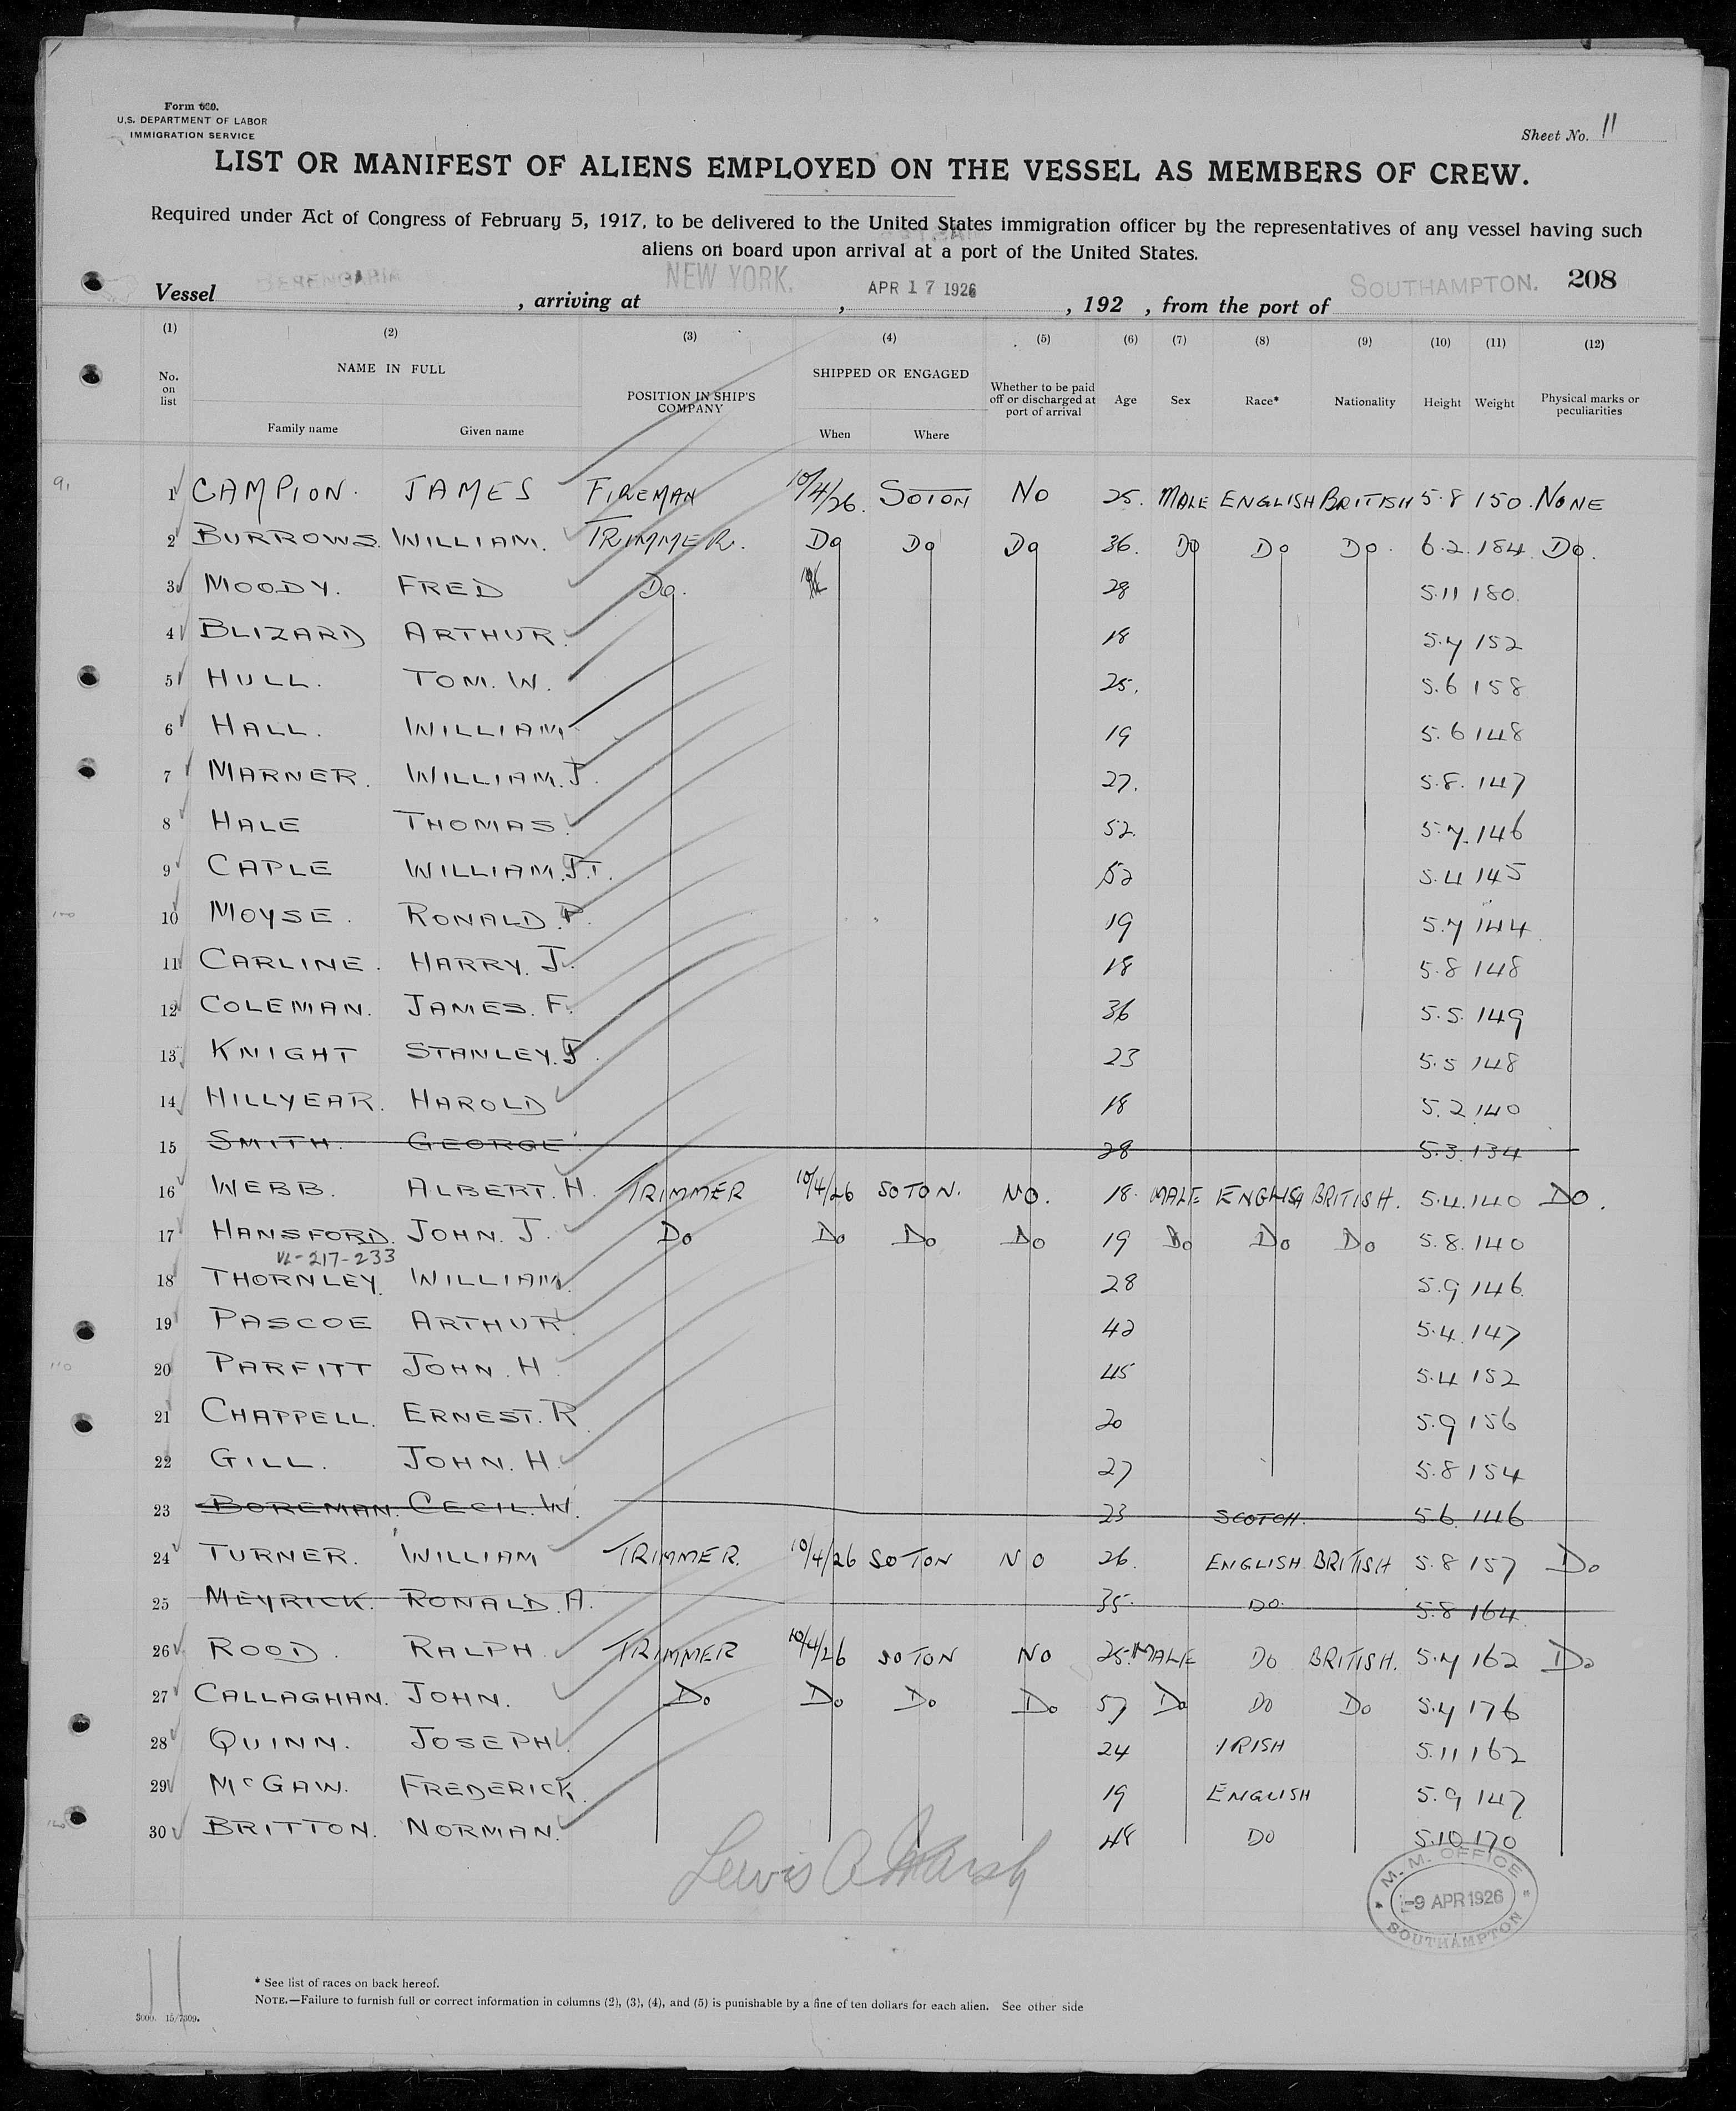 Form 680.
U.S. DEPARTMENT OF LABOR
IMMIGRATION SERVICE
Sheet No. 11
LIST OR MANIFEST OF ALIENS EMPLOYED ON THE VESSEL AS MEMBERS OF CREW.
Required under Act of Congress of February 5, 1917, to be delivered to the United States immigration officer by the representatives of any vessel having such
aliens on board upon arrival at a port of the United States.
Vessel BERENGARIA, arriving at NEW YORK. , APR 17 1926 , 192 , from the port of SOUTHAMPTON. 208
(1) (2) (3) (4) (5) (6) (7) (8) (9) (10) (11) (12)
No. on list NAME IN FULL Family name Given name POSITION IN SHIP'S COMPANY SHIPPED OR ENGAGED When Where Whether to be paid off or discharged at port of arrival Age Sex Race* Nationality Height Weight Physical marks or peculiarities
91
1 CAMPION. JAMES FIREMAN 10/4/26. SOTON NO 25. MALE ENGLISH BRITISH 5.8 150. NONE
2 BURROWS. WILLIAM. TRIMMER. Do Do Do 36. Do Do Do. 6.2. 184. Do.
3 MOODY. FRED Do. 28 5.11 180.
4 BLIZARD ARTHUR. 18 5.7 152
5 HULL. TOM. W. 25. 5.6 158
6 HALL. WILLIAM 19 5.6 148
7 MARNER. WILLIAM. J. 27. 5.8. 147
8 HALE THOMAS. 52. 5.7. 146
9 CAPLE WILLIAM. J.T. 52 5.4 145
10 MOYSE. RONALD. P. 19 5.7 144
11 CARLINE. HARRY. J. 18 5.8 148
12 COLEMAN. JAMES. F. 36 5.5. 149
13 KNIGHT STANLEY. J. 23 5.5 148
14 HILLYEAR. HAROLD 18 5.2 140
15 SMITH. GEORGE 28 5.3. 134
16 WEBB. ALBERT. H. TRIMMER 10/4/26 SOTON. NO. 18. MALE ENGLISH BRITISH. 5.4. 140 DO.
17 HANSFORD. JOHN. J. Do Do Do Do 19 Do Do Do 5.8. 140
VL-217-233
18 THORNLEY. WILLIAM. 28 5.9 146.
19 PASCOE ARTHUR. 42 5.4. 147
20 PARFITT JOHN. H. 45 5.4 152
110
21 CHAPPELL. ERNEST. R 20 5.9 156
22 GILL. JOHN. H. 27 5.8 154
23 BOREMAN. CECIL. W. 23 SCOTCH. 5.6. 146
24 TURNER. WILLIAM TRIMMER. 10/4/26 SOTON NO 26. ENGLISH. BRITISH 5.8 157 Do
25 MEYRICK. RONALD. A. 35. DO. 5.8 164
26 ROOD. RALPH. TRIMMER 10/4/26 SOTON NO 25. MALE DO BRITISH. 5.7 162 Do
27 CALLAGHAN. JOHN. Do Do Do Do 57 Do DO Do 5.7 176
28 QUINN. JOSEPH. 24 IRISH 5.11 162
29 McGAW. FREDERICK. 19 ENGLISH 5.9 147
30 BRITTON. NORMAN. 48 DO 5.10 170
Lewis A Marsh
M. M. OFFICE
-9 APR 1926
SOUTHAMPTON
11
* See list of races on back hereof.
NOTE.—Failure to furnish full or correct information in columns (2), (3), (4), and (5) is punishable by a fine of ten dollars for each alien. See other side
3000. 15/7309.